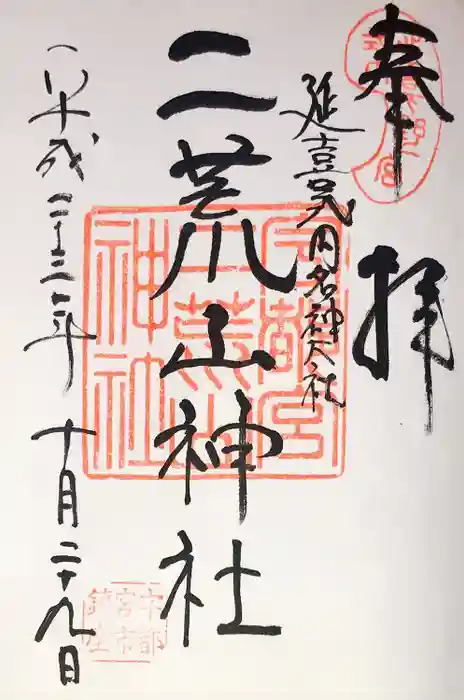 奉拝
延喜式内名神大社
二荒山神社
平成二十三年十月二十九日
宇都宮二荒山神社
宇都宮市鎮座